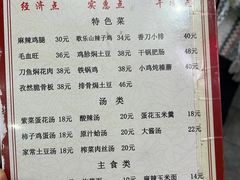 经济点 实惠点
特色菜
麻辣鸡腿 30元 歌乐山辣子鸡 34元 香刀小排 40元
毛血旺 38元 鸡胗焖土豆 38元 干锅肥肠 48元
刀鱼焖花肉 38元 铁锅鸡 38元 小鸡炖榛蘑 40元
孜然脆骨板 38元 排骨焖土豆 46元
汤类
紫菜蛋花汤 18元 酸辣汤 20元 蛋花玉米羹 18元
柿子鸡蛋汤 18元 原汁蛤汤 20元 大酱汤 22元
家常土豆汤 18元 榨菜肉丝汤 20元
主食类
麻辣玉米面